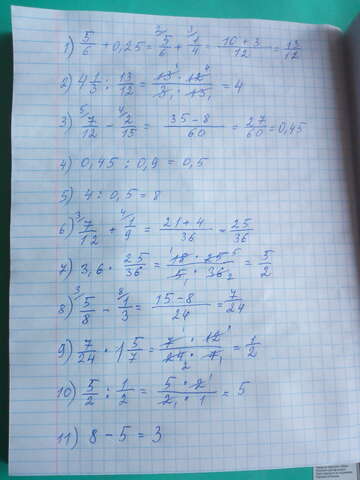 1) 5/6 + 0,25 = ²⁾5/6 + ³⁾1/4 = (10 + 3)/12 = 13/12
2) 4 1/3 : 13/12 = (13¹ · 12⁴)/(3₁ · 13₁) = 4
3) ⁵⁾7/12 - ⁴⁾2/15 = (35 - 8)/60 = 27/60 = 0,45
4) 0,45 : 0,9 = 0,5
5) 4 : 0,5 = 8
6) ³⁾7/12 + ⁴⁾1/9 = (21 + 4)/36 = 25/36
7) 3,6 · 25/36 = (18¹ · 25⁵)/(5₁ · 36₂) = 5/2
8) ³⁾5/8 - ⁸⁾1/3 = (15 - 8)/24 = 7/24
9) 7/24 · 1 5/7 = (7¹ · 12¹)/(24₂ · 7₁) = 1/2
10) 5/2 : 1/2 = (5 · 2¹)/(2₁ · 1) = 5
11) 8 - 5 = 3